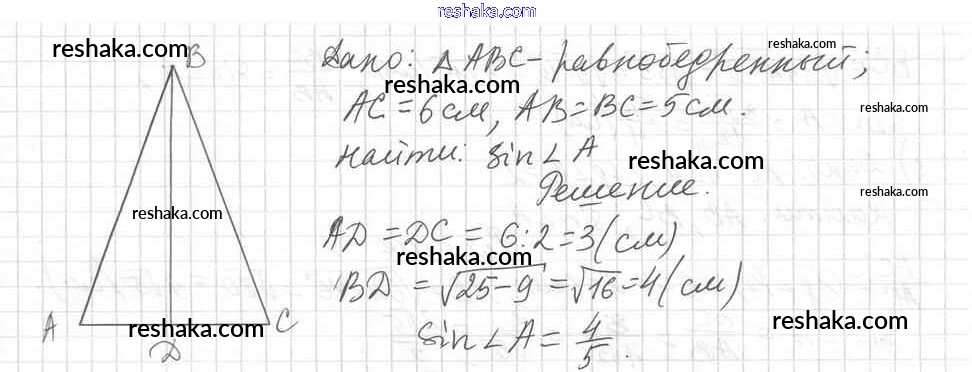 reshaka.com
reshaka.com
B
reshaka.com
A
D
C
reshaka.com
Дано: Δ ABC - равнобедренный;
reshaka.com
reshaka.com
AC = 6 см, AB = BC = 5 см.
reshaka.com
Найти: sin∠A
reshaka.com
Решение.
reshaka.com
AD = DC = 6:2 = 3 (см)
reshaka.com
BD = √25-9 = √16 = 4 (см)
sin∠A = 4/5.
reshaka.com